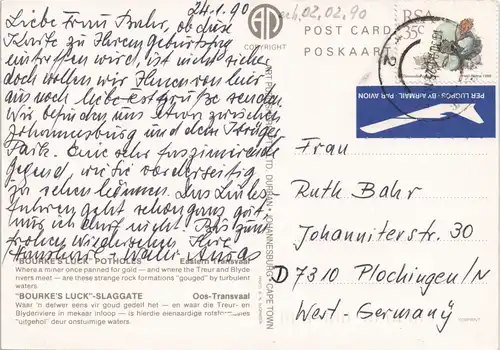 24.1.90
Liebe Frau Bahr, ob diese
Karte zu Ihrem Geburtstag
eintreffen wird, ist nicht sicher
doch wollen wir Ihnen von hier
aus noch liebe Grüße senden.
Wir befinden uns etwa zwischen
Johannesburg und dem Krüger
Park. Eine sehr faszinierende
Gegend, wie sie vorderseitig
zu sehen können. Das Links
fahren geht schon ganz gut,
nur ich darf nicht. Bis zum
frohen Wiedersehen Ihre
"BOURKE'S LUCK" POTHOLES Eastern Transvaal
Where a miner once panned for gold — and where the Treur and Blyde
rivers meet — are these strange rock formations "gouged" by turbulent
waters.
"BOURKE'S LUCK"-SLAGGATE Oos-Transvaal
Waar 'n delwer eens vir goud gedell het — en waar die Treur- en
Blyderiviere in mekaar inloop — is hierdie eienaardige rotsformasies
"uitgehol" deur onstuimige waters.
COPYRIGHT
02.02.90
POST CARD
POSKAART
RSA
35c
PER LUGPOS·BY AIRMAIL·PAR AVION
Frau
Ruth Bahr
Johanniterstr. 30
D 7310 Plochingen/N
West-Germany